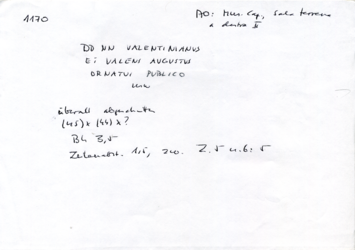 1170
AO: Mus. Cap., Sala terrena
a destra II
DD NN VALENTINIANUS
ET VALENS AUGUSTUS
ORNATUI PUBLICO
überall abgebrochen
(45) x (44) x ?
BH 3,5
Zeilenabst. 1,5, zw. Z. 5 u. 6: 5